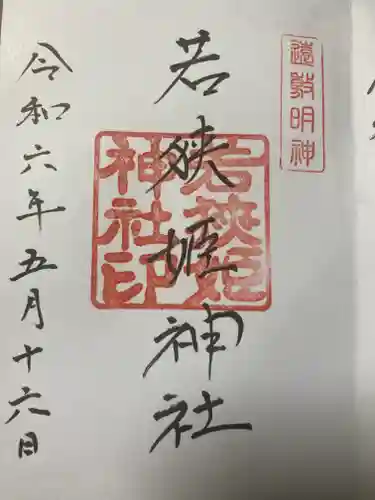 遠敷明神
若狭姫神社
若狭姫神社印
令和六年五月十六日